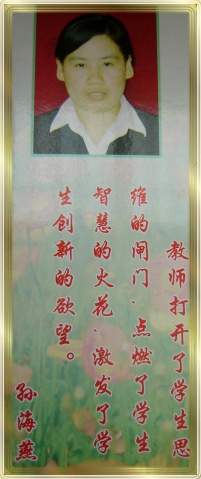 教师打开了学生思
维的闸门，点燃了学生
智慧的火花，激发了学
生创新的欲望。
孙海燕